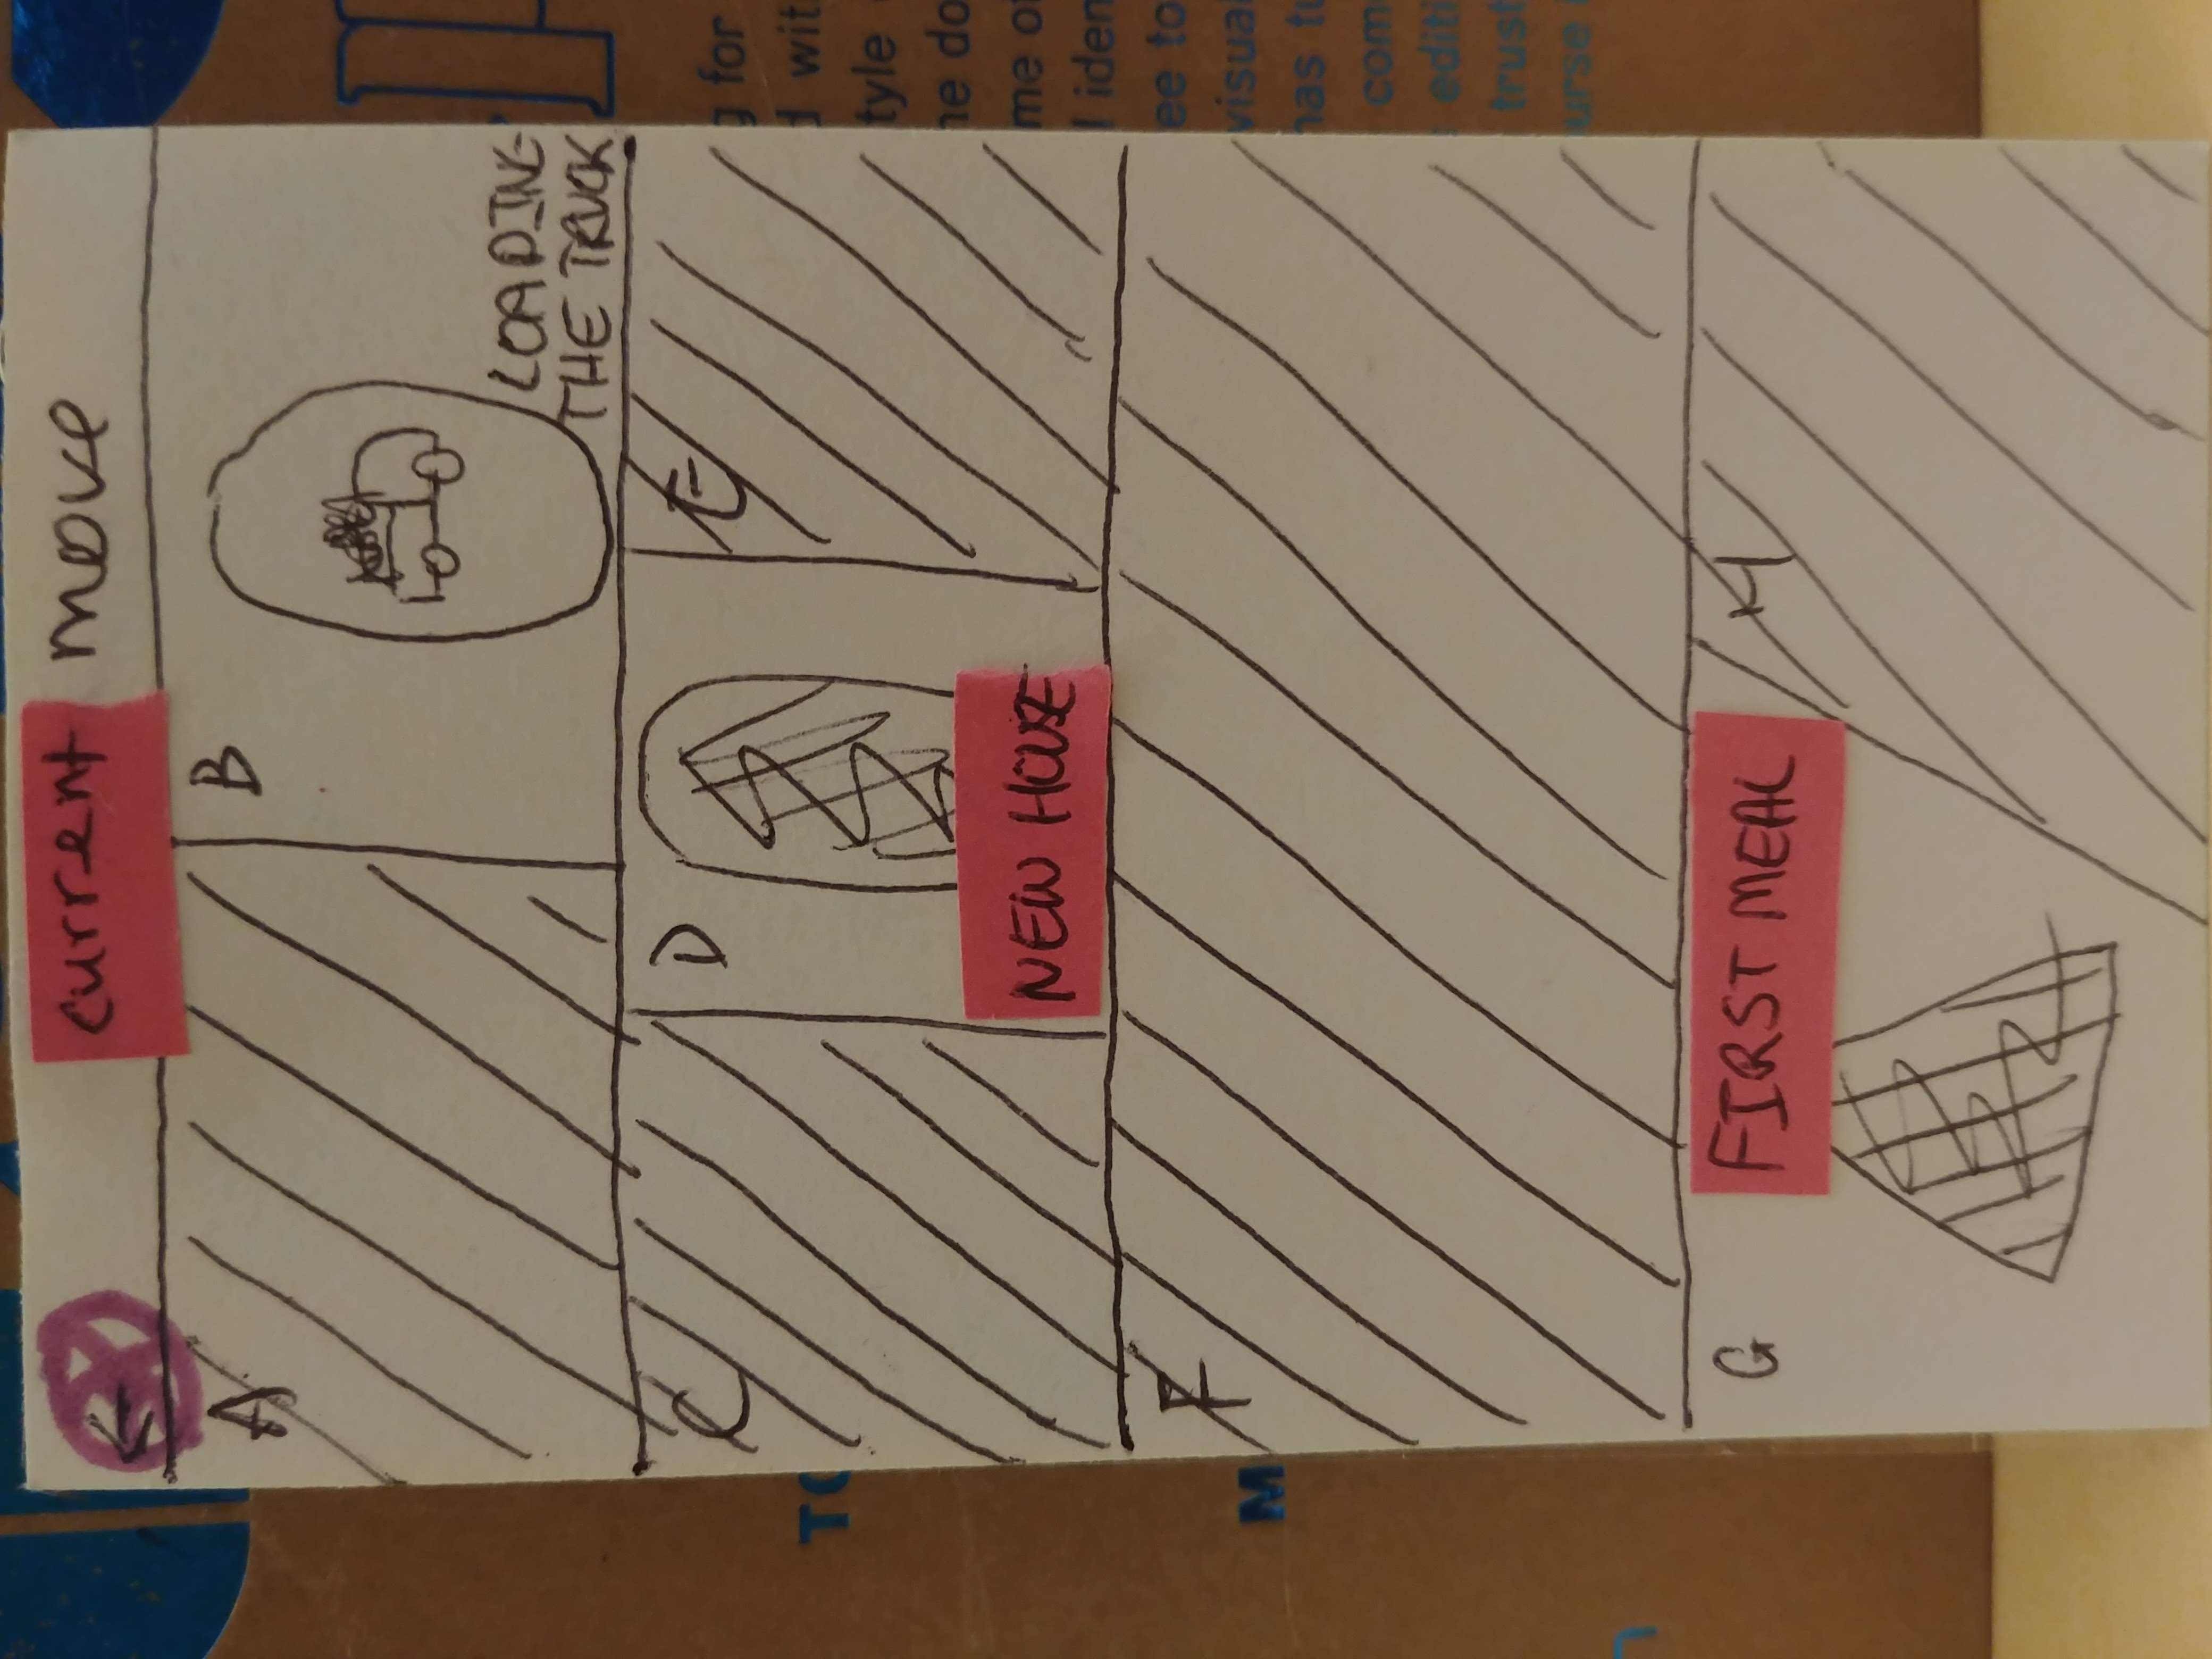 current move
A
B
LOADING
THE TRUCK
C
D
E
NEW HOUSE
F
G
FIRST MEAL
H
TO
M
g for
d wit
tyle
he do
me of
l iden
ee to
visual
has tu
com
editi
trust
urse